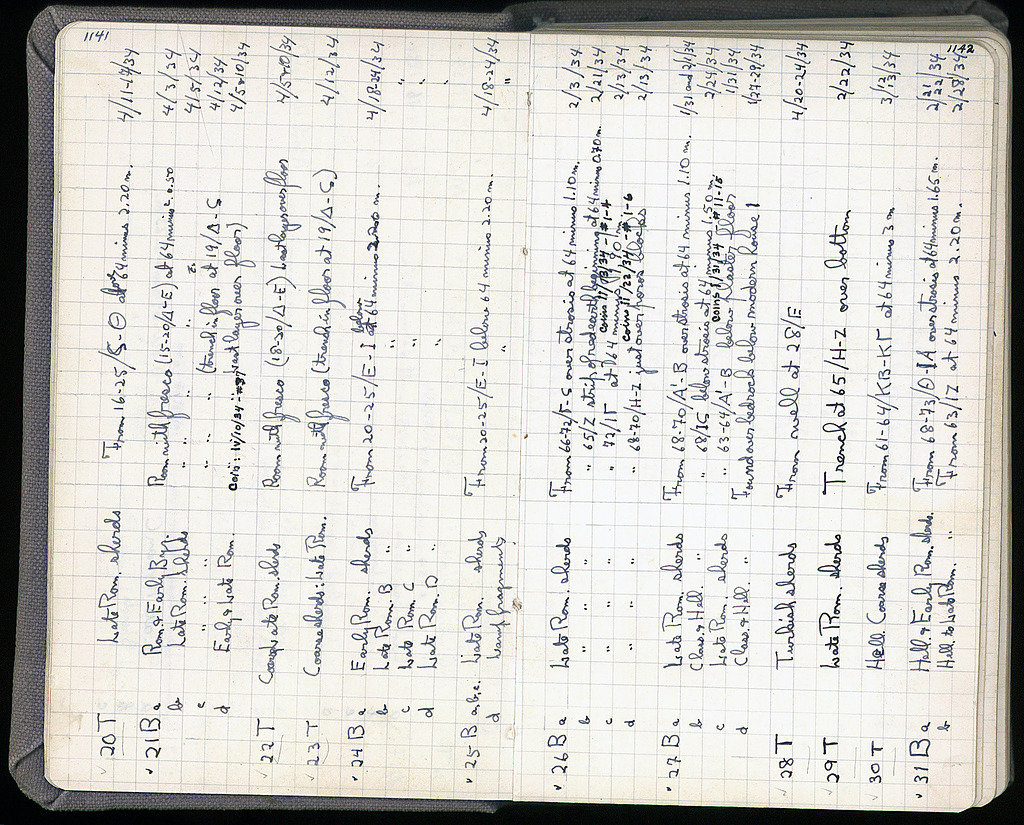 1141
20 T Late Rom. sherds From 16-25/ς-Θ at 64 minus 2.20 m. 4/11-17/34
21 B a Rom. & Early Byz. Room with fresco (15-20/Δ-E) at 64 minus 0.50 4/3/34
b Late Rom. sherds " " " " 4/5/34
c " " " " " " (trench in floor at 19/Δ-ς 4/12/34
d Early & Late Rom. last layer over floor) 4/5&10/34
coin: IV/10/34
22 T Coarse Late Rom. sherds Room with fresco (18-20/Δ-E) last layer over floor 4/5&10/34
23 T Coarse sherds: Late Rom. Room with fresco (trench in floor at 19/Δ-ς) 4/12/34
24 B a Early Rom. sherds From 20-25/E-I below at 64 minus 2.20 m. 4/18-24/34
b Late Rom. B " " "
c Late Rom. C " " "
d Late Rom. D " " "
25 B a, b, c. Late Rom. sherds From 20-25/E-I below 64 minus 2.20 m. 4/18-24/34
d Lamp fragments " "
1142
26 B a Late Rom. sherds From 66-72/Γ-ς over strosis at 64 minus 1.10 m. 2/3/34
b " " " " 65/Z strip of red earth beginning at 64 minus 0.70 m. 2/21/34
coins 11/13/34 - #1-4
c " " " " 72/IΓ at 64 minus 2/13/34
coins 11/22/34 - #1-6
d " " " " 68-70/H-Z just over poros blocks 2/13/34
27 B a Late Rom. sherds From 68-70/A'-B over strosis at 64 minus 1.10 m. 1/31 and 2/1/34
b Class. & Hell. " " 68/Iς below strosis at 64 minus 1.50 m. 2/24/34
coins 1/31/34 - #11-15
c Late Rom. sherds " 63-64/A'-B below plaster floor 1/31/34
d Class. & Hell. " Found over bedrock below modern house 1 1/27-29/34
28 T Turkish sherds From well at 28/E 4/20-24/34
29 T Late Rom. sherds Trench at 65/H-Z over bottom 2/22/34
30 T Hell. Coarse sherds From 61-64/KB-KΓ at 64 minus 3 m 3/12/13/34
31 B a Hell. & Early Rom. sherds. From 68-73/Θ-IA over strosis at 64 minus 1.65 m. 2/21/34 2/22/34
b Hell. to Late Rom. " From 63/IZ at 64 minus 2.20 m. 2/28/34